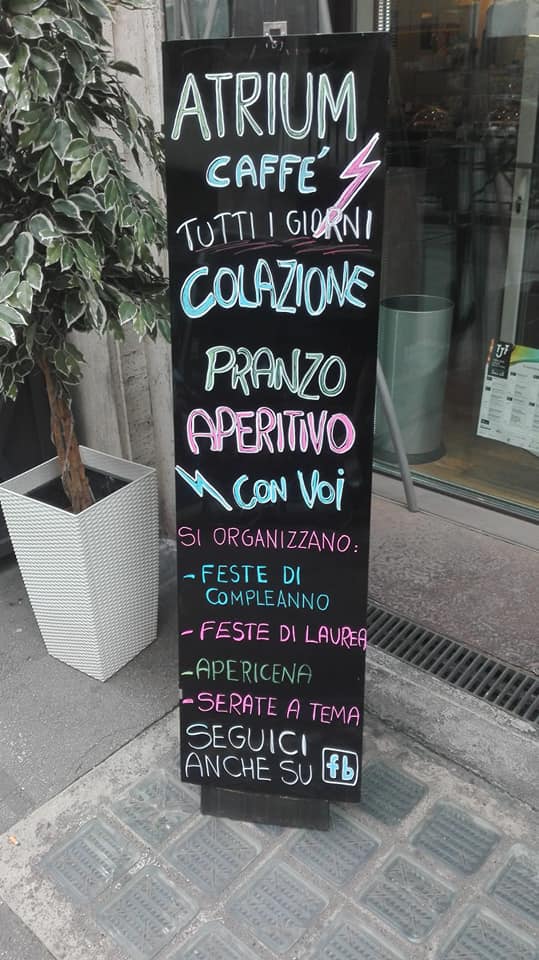 ATRIUM
CAFFE'
TUTTI I GIORNI
COLAZIONE
PRANZO
APERITIVO
CON VOI
SI ORGANIZZANO:
- FESTE DI
COMPLEANNO
- FESTE DI LAUREA
- APERICENA
- SERATE A TEMA
SEGUICI
ANCHE SU fb